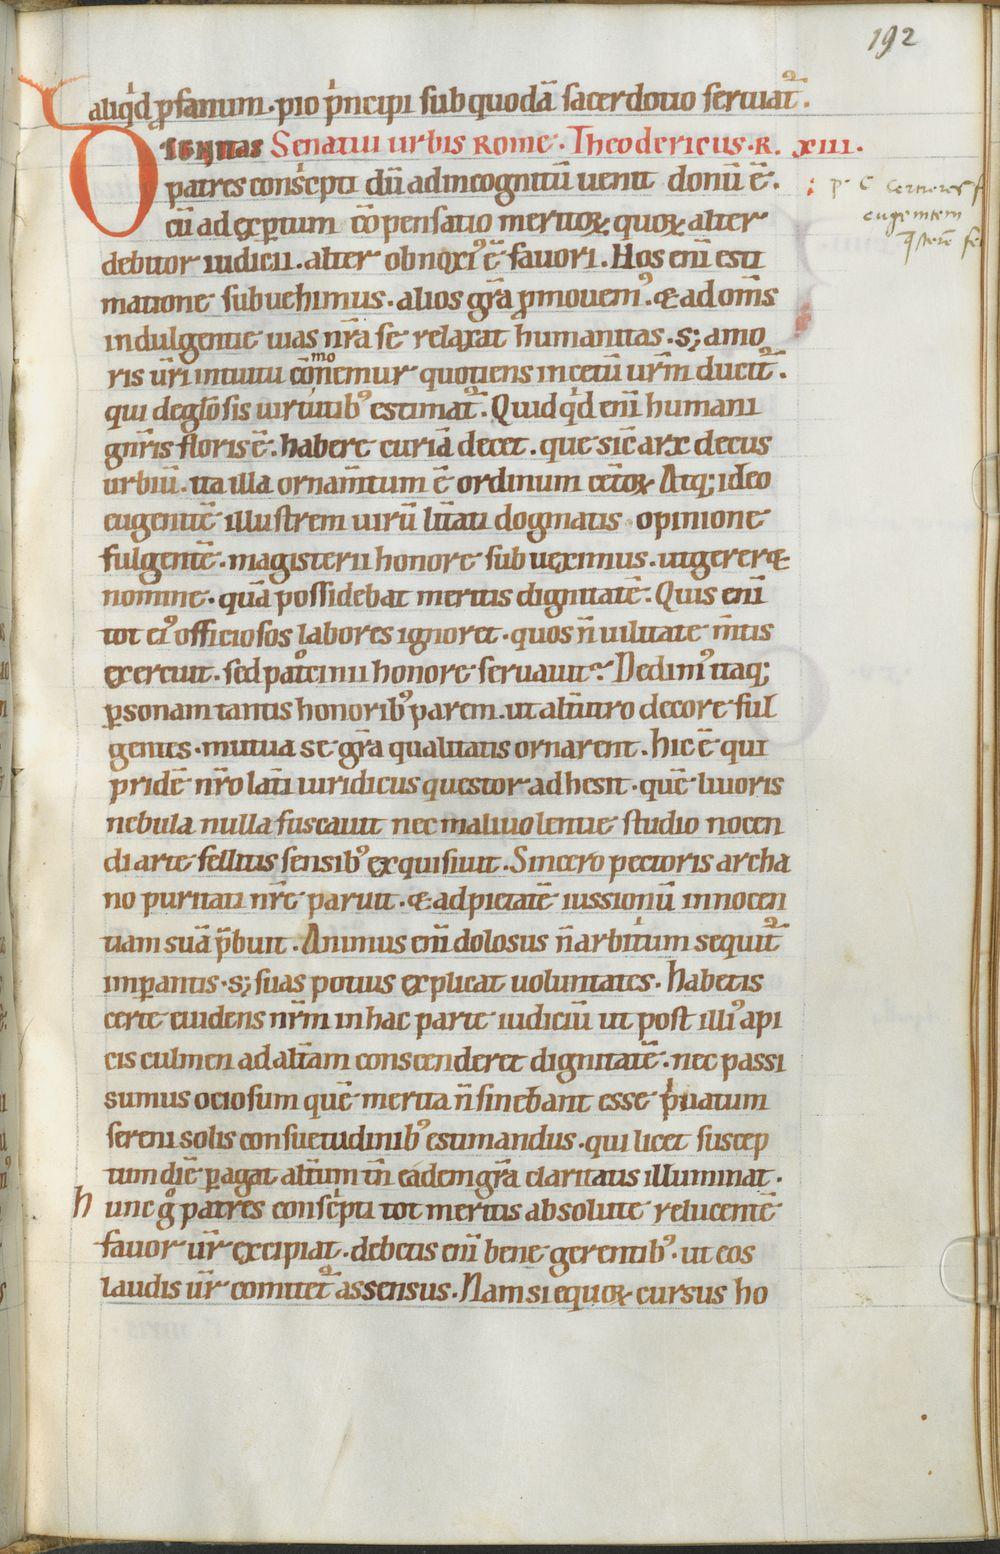 192
aliq̇d ꝓfanum. pio p̓ncipi sub quodā sacerdotio seruat᷑.
DIGNITAS Senatui urbis Rome. Theodericus. R. xiii.
patres consc̓pti dū ad incognitū uenit donū ē.
cū ad exꝑtum cōpensatio meritoꝝ. quoꝝ alter
debitor iudicii. alter obnoxi᷒ ē fauori. Hos eni̅ esti
matione subuehimus. alios gr̅a ꝓmouem᷒. & ad om̅s
indulgentie uias nr̅a se relaxat humanitas. s; amo
ris ur̅i intuitu com̅onemur quotiens in cetu̅ ur̅m ducit᷑.
qui de gl̅osis uirtutib᷒ estimat᷑. Quid q̇d eni̅ humani
gn̅ris floris ē. habere curiā decet. que sic̅ arx decus
urbiū. ita illa ornam̅tum ē ordinum cet̅oꝝ Atq; ideo
eugenite̅ illustrem uirū litt̅ati dogmatis opinione
fulgente̅. magisterii honore subueximus. ut gereret
nomine. quā possidebat meritis dignitate̅. Quis eni̅
tot ei᷒ officiosos labores ignoret. quos n̅ uilitate m̅tis
exercuit. sed pat̊cinii honore seruauit? Dedim᷒ itaq;
ꝑsonam tantis honorib᷒ parem. ut alt̅utro decore ful
gentes. mutua se gr̅a qualitatis ornarent. hic ē qui
pridē nr̅o lat̅i uiridicus questor adhesit. que̅ liuoris
nebula nulla fuscauit nec maliuolentie studio nocen
di arte fellitis sensib᷒ exquisiuit. Sincero pectoris archa
no puritati nr̅e paruit. & ad pietate̅ iussionū innocen
tiam suā p̅buit. Animus eni̅ dolosus n̅ arbit̓um sequit᷑
imꝑantis. s; suas potius explicat uoluntates. habetis
certe euidens nr̅m in hac parte iudiciū ut post illi᷒ api
cis culmen ad alt̅am conscenderet dignitate̅. nec passi
sumus ociosum que̅ merita n̅ sinebant esse p̓uatum
sereni solis consuetudinib᷒ estimandus. qui licet suscep
tum die̅ ꝑagat alt̅um tn̅ eādem gr̅a claritatis illuminat.
hunc g̊ patres consc̓pti tot meritis absolute relucente̅
fauor ur̅ excipiat. debetis eni̅ bene gerentib᷒. ut eos
laudis ur̅ comitet᷑ assensus. Nam si equoꝝ cursus ho
p. C.
eugenitem